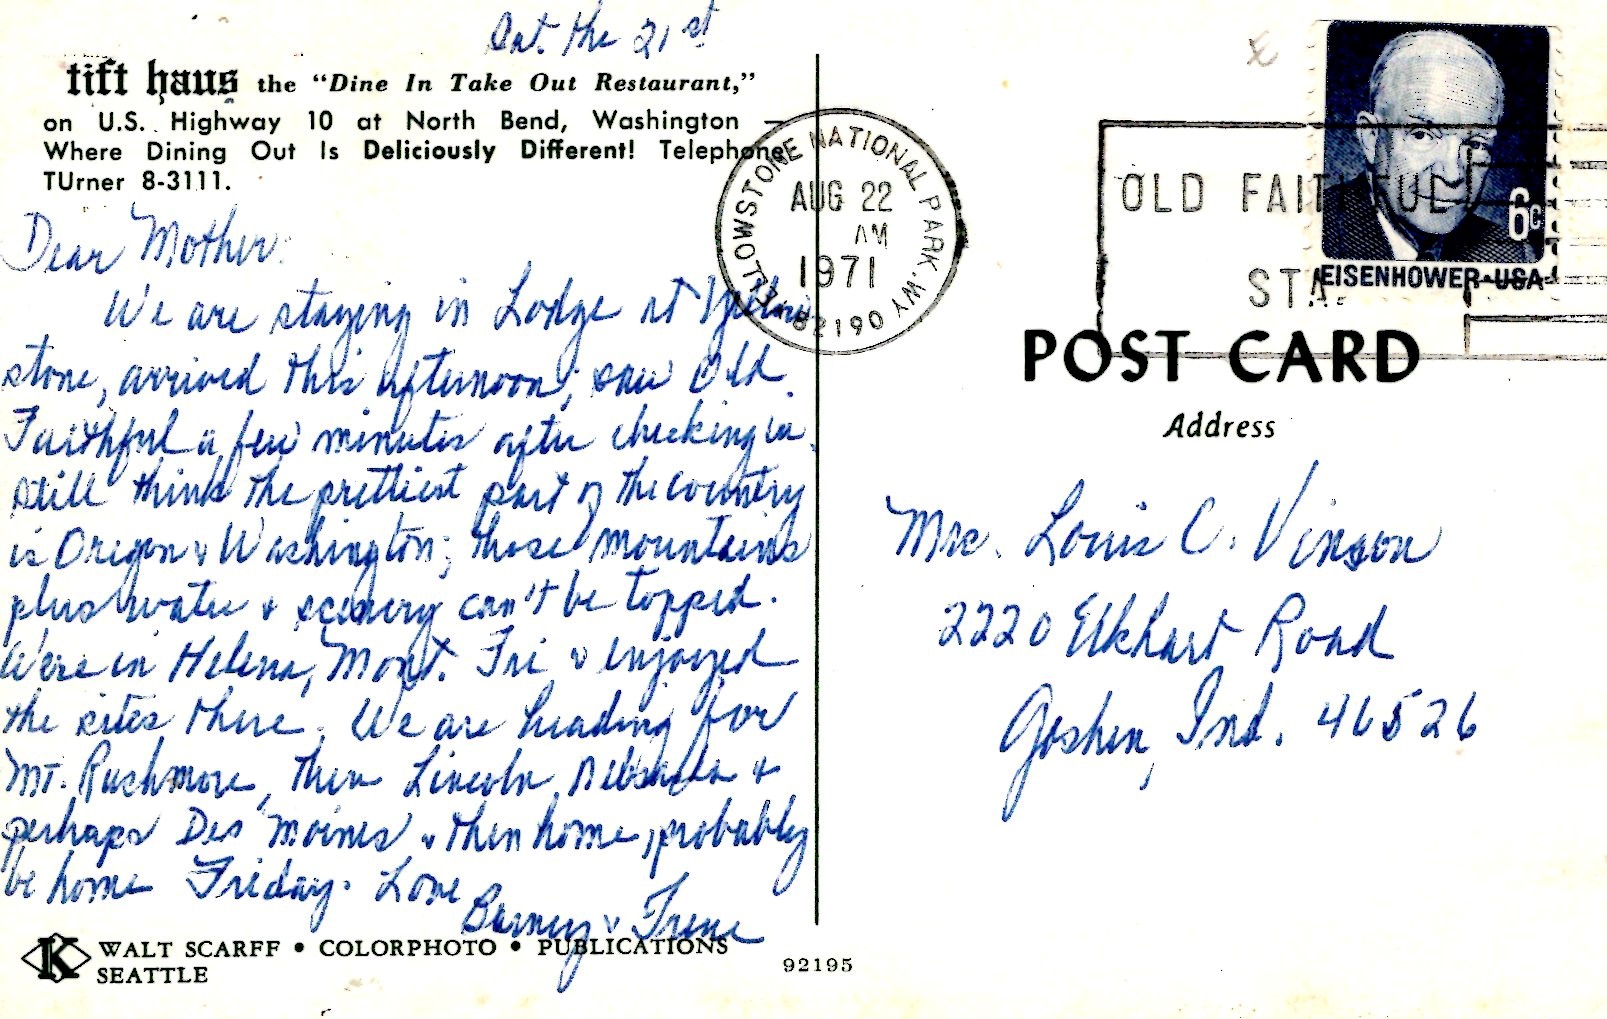 Sat. the 21st
tift haus the "Dine In Take Out Restaurant,"
on U.S. Highway 10 at North Bend, Washington —
Where Dining Out Is Deliciously Different! Telephone
TUrner 8-3111.
Dear Mother:
We are staying in Lodge at Yellow
stone, arrived this afternoon, saw Old
Faithful a few minutes after checking in.
still think the prettiest part of the country
is Oregon & Washington; those mountains
plus water & scenery can't be topped.
Were in Helena, Mont. Fri & enjoyed
the sites there. We are heading for
Mt. Rushmore, then Lincoln, Nebraska &
perhaps Des Moines & then home, probably
be home Friday. Love
Barney & Irene
K WALT SCARFF • COLORPHOTO • PUBLICATIONS
SEATTLE
92195
YELLOWSTONE NATIONAL PARK, WY 82190
AUG 22
AM
1971
OLD FAITHFUL
STA.
6c
EISENHOWER·USA
POST CARD
Address
Mrs. Louis C. Vinson
2220 Elkhart Road
Goshen, Ind. 46526